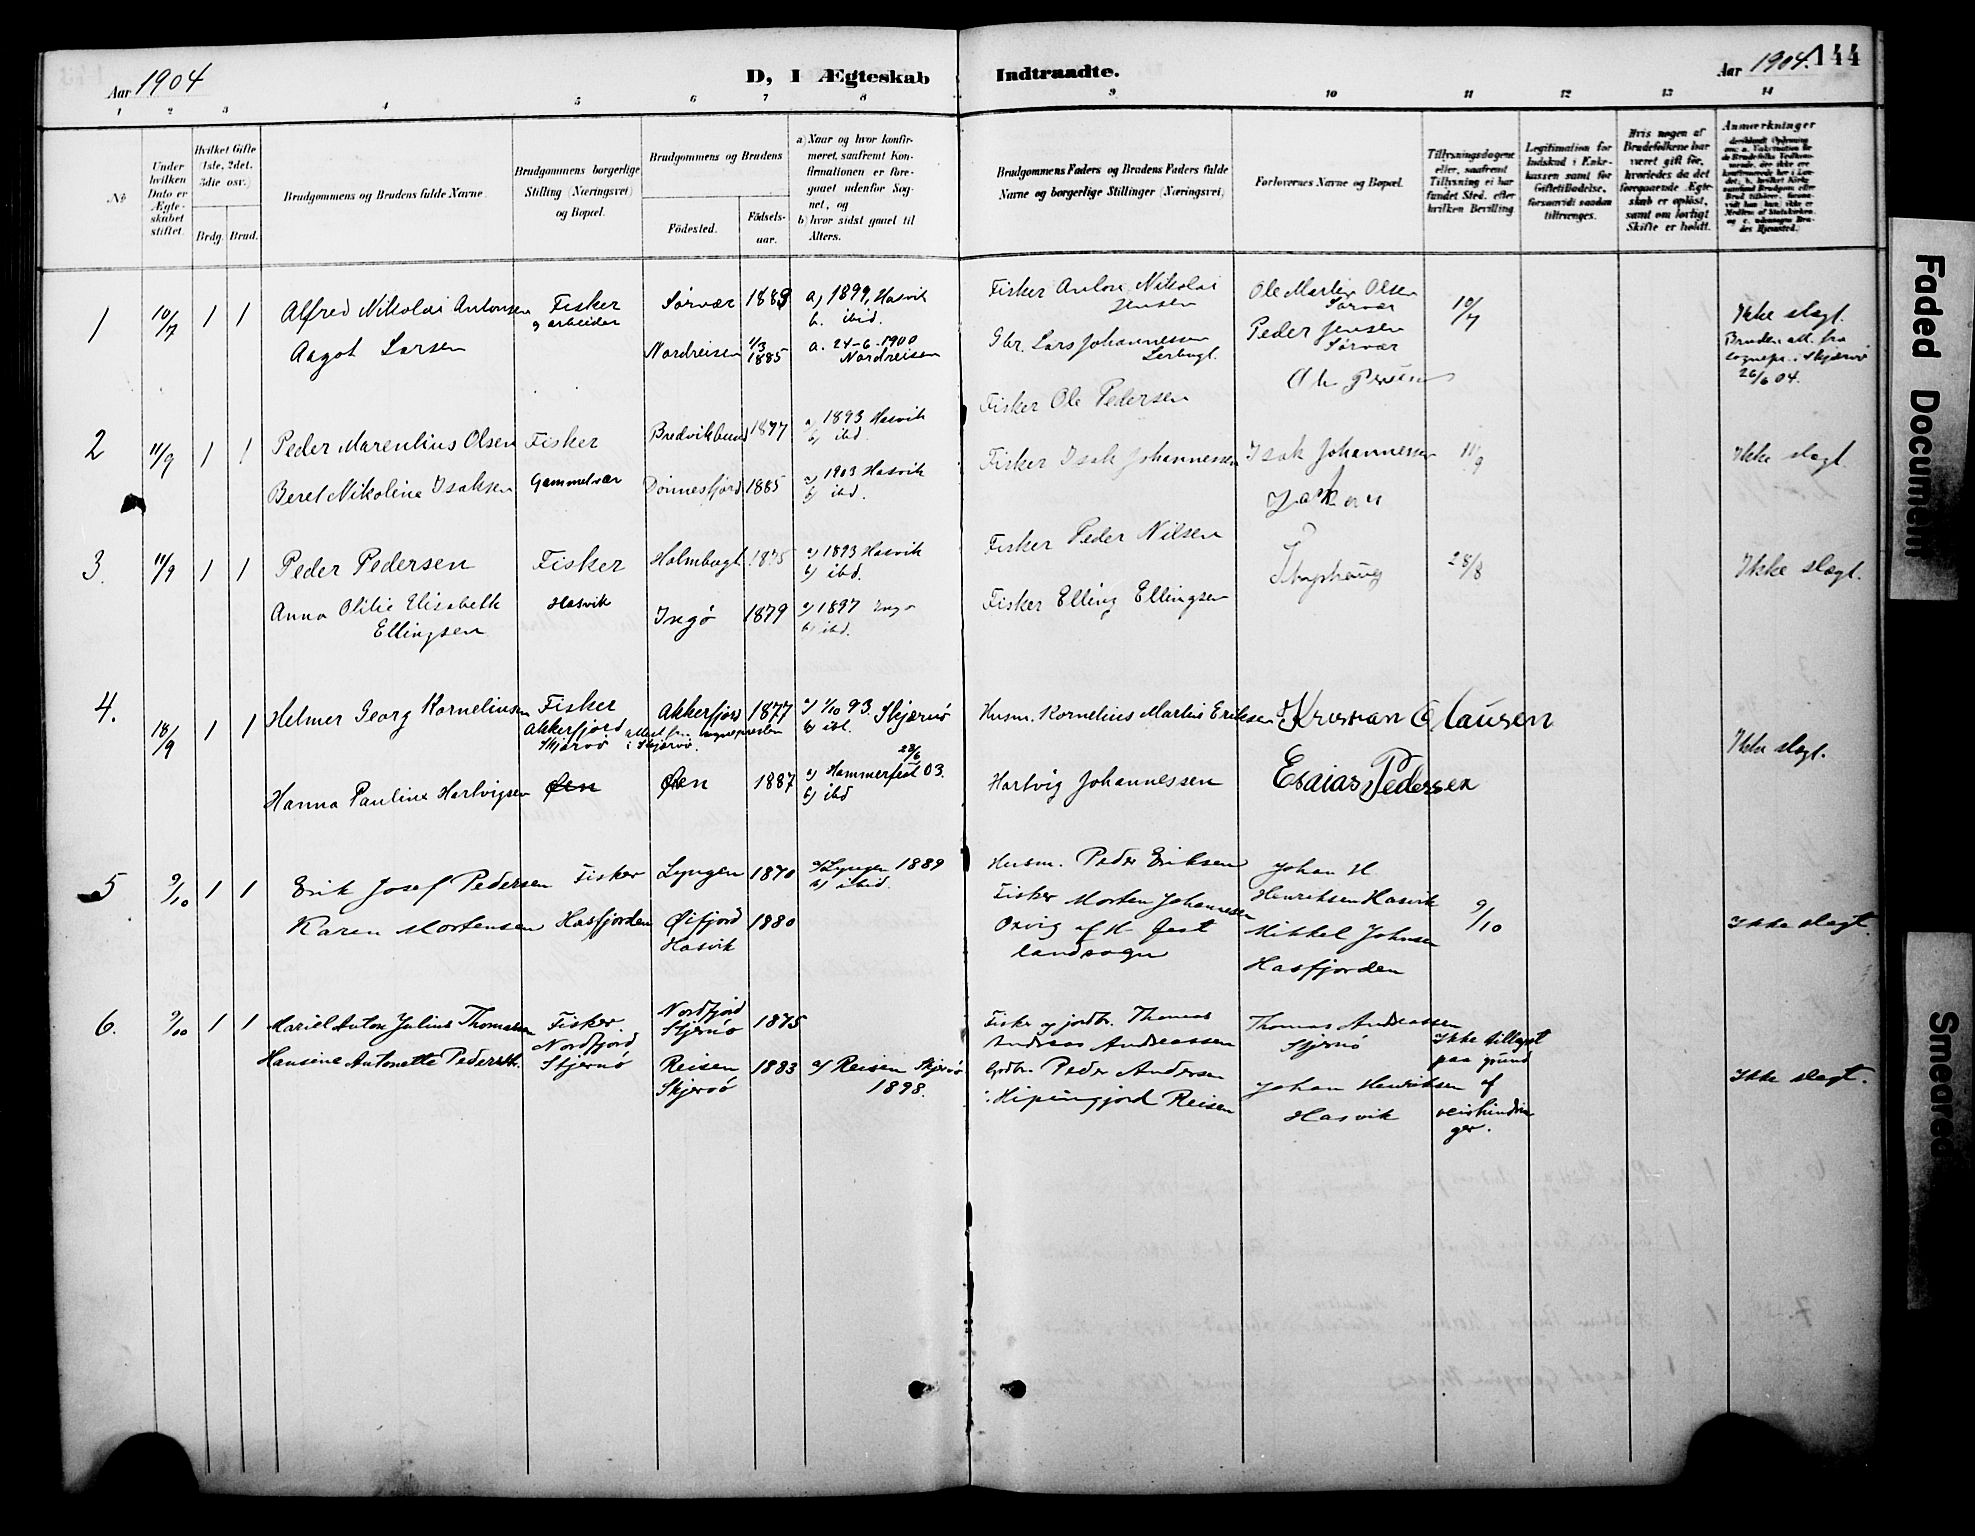 Aar 1904
D, I Ægteskab Indtraadte.
Aar 1904. 144
1 2 3 4 5 6 7 8 9 10 11 12 13 14
No
Under hvilken Dato er Ægteskabet stiftet.
Hvilket Gifte (1ste, 2det, 3die osv.)
Brdg. Brud.
Brudgommens og Brudens fulde Navne
Brudgommens borgerlige Stilling (Næringsvei) og Bopæl.
Brudgommens og Brudens
Födested.
Födsels-aar.
a) Naar og hvor konfirmeret, saafremt Konfirmationen er foregaaet udenfor Sognet, og
b) hvor sidst gaaet til Alters.
Brudgommens Faders og Brudens Faders fulde Navne og borgerlige Stillinger (Næringsvei)
Forlovernes Navne og Bopæl.
Tillysningsdagene eller, saafremt Tillysning ei har fundet Sted, efter hvilken Bevilling.
Legitimation for Indskud i Enkekassen samt for Giftetilladelse, forsaavidt saadan tiltrænges.
Hvis nogen af Brudefolkene har været gift før, hvorledes da det foregaaende Ægteskab er opløst, samt om lovligt Skifte er holdt.
Anmærkninger
1 10/7 1 1 Alfred Nikolai Antonsen Fisker og arbeider Sørvær 1883 a) 1899, Hasvik b. ibid. Fisker Anton Nikolai Jensen Ole Martin Olsen Sørvær 10/7 Ikke slægt.
Aagot Larsen Nordreisen 1/3 1885 a. 24-6-1900 Nordreisen Gbr. Lars Johannessen Lerbugt. Peder Jensen Sørvær Bruden att. fra sognepr. i Skjærvø 26/6 04.
2 11/9 1 1 Peder Marenlius Olsen Fisker Bredvikbund 1877 a) 1893 Hasvik b) ibd. Fisker Ole Pedersen 11/9 Ikke slægt
Beret Nikoline Isaksen Gammelvær Dønnesfjord 1885 a) 1903 Hasvik b) ibd. Fisker Isak Johannessen Isak Johannessen
3. 11/9 1 1 Peder Pedersen Fisker Holmbugt 1875 a) 1893 Hasvik b) ibd. Fisker Peder Nilsen 28/8 Ikke slægt.
Anna Otilie Elisabeth Ellingsen Hasvik Ingø 1879 a) 1897 Ingø b) ibd. Fisker Elling Ellingsen
4. 18/9 1 1 Helmer Georg Kornelinsen Fisker Akkerfjord Skjærvø attest fra sognepresten i Skjærvø. Akkerfjord 1877 a) 1/10 93. Skjærvø b) ibd. Husm. Kornelius Martin Eriksen Kristian Clausen Ikke slægt.
Hanna Pauline Hartvigsen Øen Øen 1887 a) Hammerfest 28/6 03. b) ibd Hartvig Johannessen Esaias Pedersen
5 9/10 1 1 Erik Josef Pedersen Fisker Lyngen 1870 a) Lyngen 1889 b) ibid. Husm. Peder Eriksen Johan H Henriksen Hasvik 9/10 Ikke slægt.
Karen Mortensen Hasfjorden Øifjord Hasvik 1880 Fisker Morten Johannesen Oxvig af H. fest landsogn Mikkel Johnsen Hasfjorden
6. 9/10 1 1 Mariel Anton Julius Thomassen Fisker. Nordfjord Stjernø Nordfjord Stjernø 1875 Fisker og jordbr. Thomas Andreas Andreassen Thomas Andreassen Stjernø Ikke tillyst paa grund af veirhindringer. Ikke slægt.
Hansine Antonette Pedersdt. Reisen Skjervø 1883 a) Reisen Skjervø 1898. Grdbr. Peder Andersen Reisen Johan Henriksen Hasvik
Faded Document
Smeared